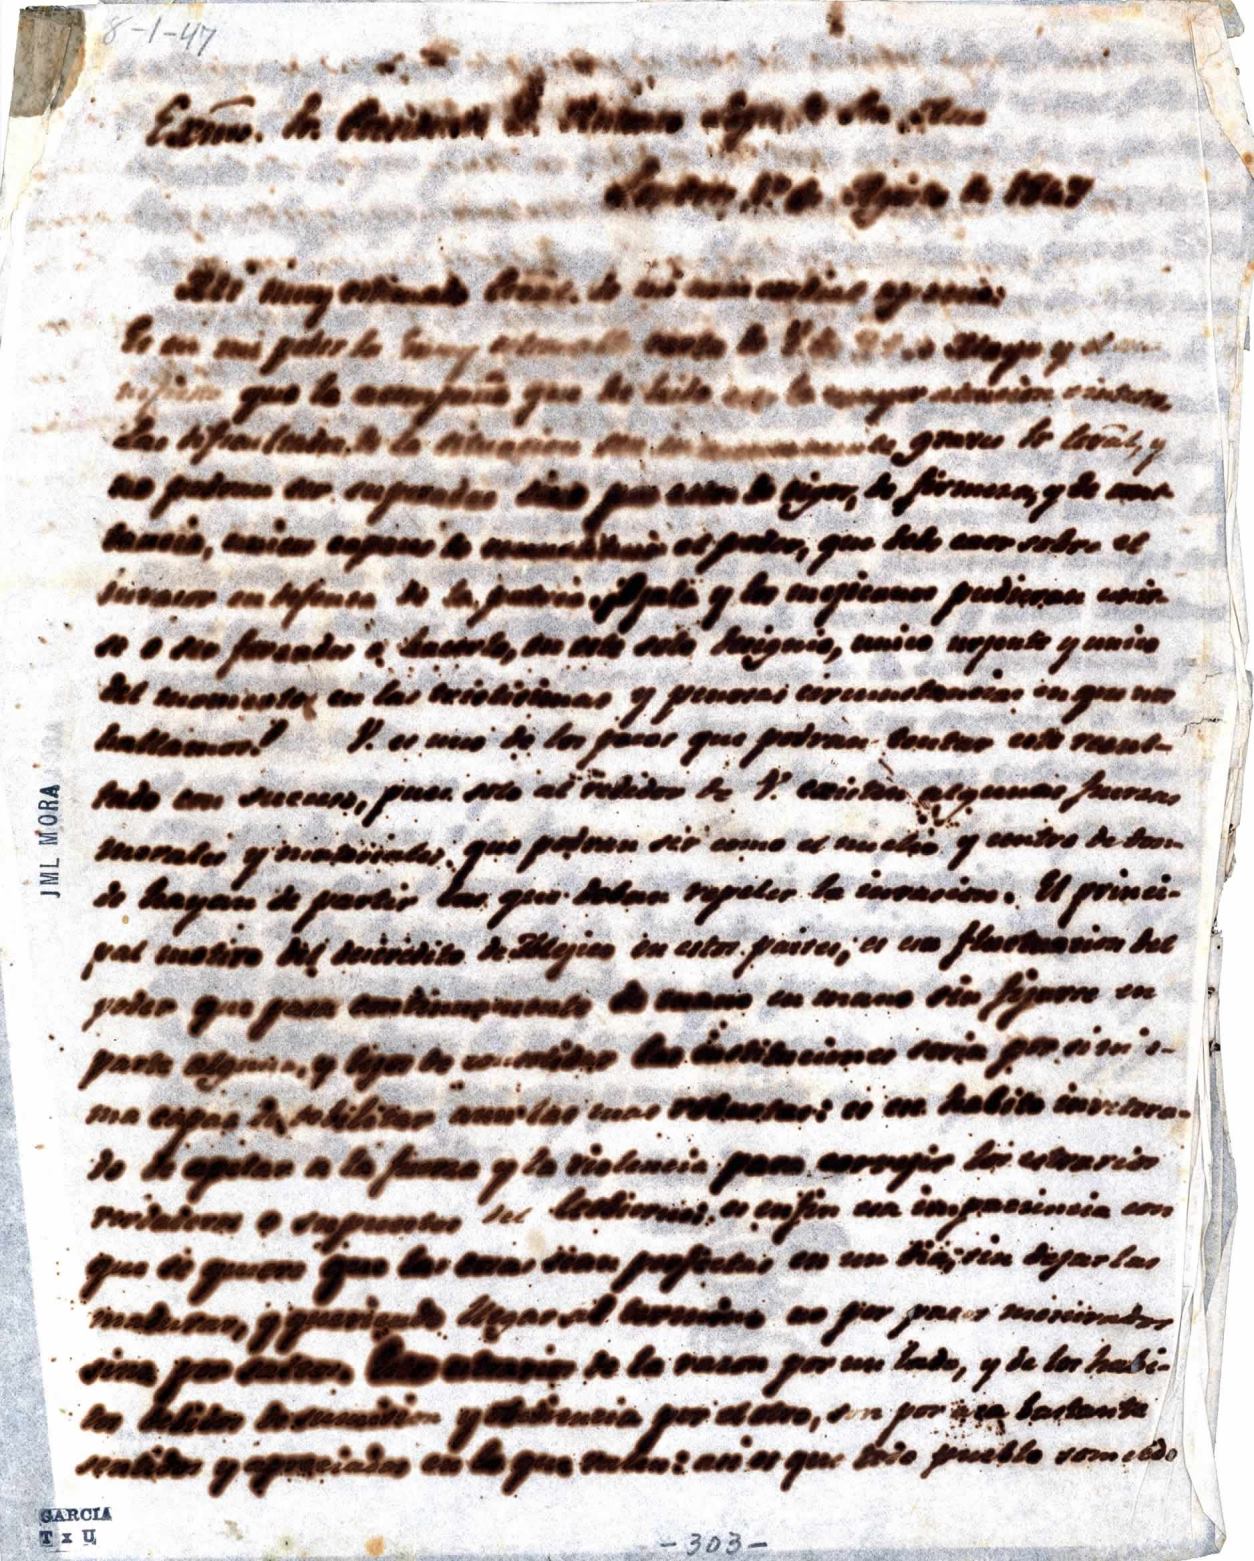 8-1-47
Exmo. Sr. Presidente D. Antonio Lopez de Sta. Ana
Londres 1º de Agosto de 1847
Mi muy estimado Genal. de mi mas aprecio:
Es en mi poder la muy estimada carta de V. de de Mayo y el
que la acompaña que he leido con la mayor atencion e interes.
Las dificultades de la situacion son graves Sr. Genal, y
no podran ser superadas sino por actos de vigor, de firmeza, y de cons-
tancia, unicos capaces de el poder, que debe caer sobre el
invasor en defensa de la patria. ¡Ojala y los mejicanos pudieran unir-
se o ser forzados a hacerlo, en este solo designio, unico urgente y unico
del momento en las tristisimas y penosas circunstancias en que nos
hallamos! V. es uno de los pocos que podran tentar este resul-
tado con suceso, pues solo al rededor de V. existen algunas fuerzas
morales y materiales, que podran ser como el nucleo y centro de don-
de hayan de partir las que deban repeler la invasion. El princi-
pal motivo del descredito de Mejico en estos paises, es esa fluctuacion del
poder que pasa continuamente de mano en mano sin fijarse en
parte alguna, y lejos de consolidar las instituciones seria por si mis-
ma capaz de debilitar aun las mas robustas: es ese habito invetera-
do de apelar a la fuerza y la violencia para correjir los estravios
verdaderos o supuestos del Gobierno: es en fin esa impaciencia con
que se quiere que las cosas sean perfectas en un dia, sin dejarlas
madurar, y queriendo llegar al termino no por pasos mesurados
sino por saltos. de la razon por un lado, y de los habi-
tos debidos de sumision y obediencia por el otro, son por aca bastante
sentidos y apreciados en lo que valen: asi es que todo pueblo sometido
JML MORA
GARCIA
- 303 -